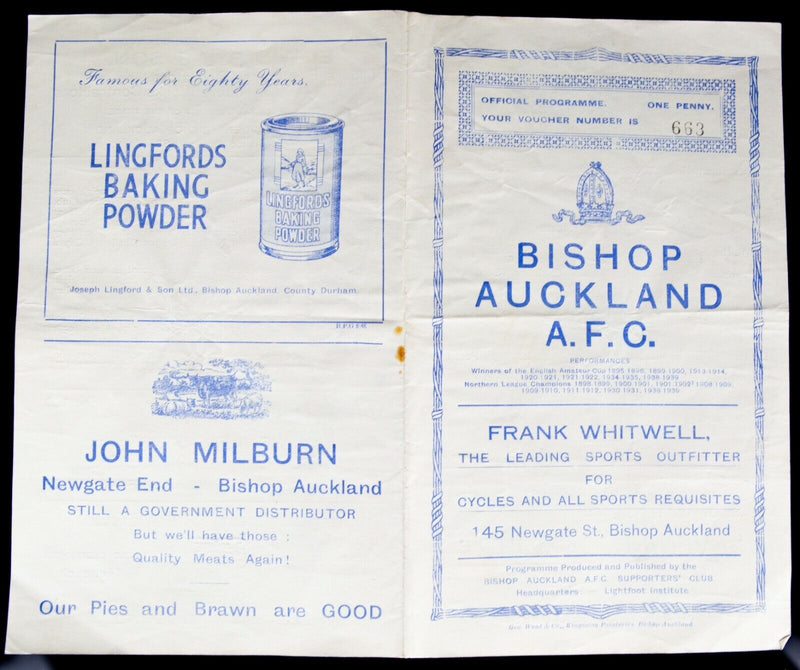 Famous for Eighty Years.
LINGFORDS
BAKING
POWDER
LINGFORD'S
BAKING
POWDER
Joseph Lingford & Son Ltd., Bishop Auckland, County Durham.
JOHN MILBURN
Newgate End - Bishop Auckland
STILL A GOVERNMENT DISTRIBUTOR
But we'll have those :
Quality Meats Again!
Our Pies and Brawn are GOOD
OFFICIAL PROGRAMME. ONE PENNY.
YOUR VOUCHER NUMBER IS 663
BISHOP
AUCKLAND
A.F.C.
PERFORMANCES
Winners of the English Amateur Cup 1895-1896, 1899-1900, 1913-1914,
1920-1921, 1921-1922, 1934-1935, 1938-1939
Northern League Champions 1898-1899, 1900-1901, 1901-1902, 1908-1909,
1909-1910, 1911-1912, 1930-1931, 1938-1939
FRANK WHITWELL,
THE LEADING SPORTS OUTFITTER
FOR
CYCLES AND ALL SPORTS REQUISITES
145 Newgate St., Bishop Auckland
Programme Produced and Published by the
BISHOP AUCKLAND A.F.C. SUPPORTERS' CLUB
Headquarters - Lightfoot Institute
Bishop Auckland